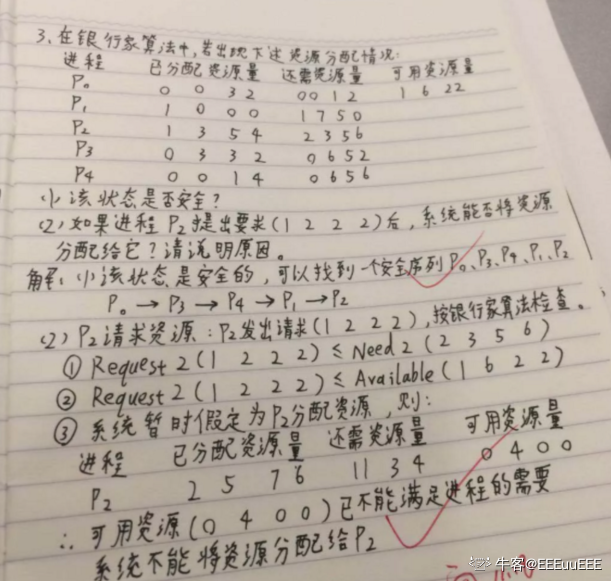 3、在银行家算法中,若出现下述资源分配情况:
进程 已分配资源量 还需资源量 可用资源量
P₀ 0 0 3 2 0 0 1 2 1 6 2 2
P₁ 1 0 0 0 1 7 5 0
P₂ 1 3 5 4 2 3 5 6
P3 0 3 3 2 0 6 5 2
P4 0 0 1 4 0 6 5 6
(1) 该状态是否安全?
(2) 如果进程P₂提出要求(1 2 2 2)后,系统能否将资源
分配给它?请说明原因。
解:(1)该状态是安全的,可以找到一个安全序列P₀、P₃、P₄、P₁、P₂
P₀ → P₃ → P₄ → P₁ → P₂
(2) P₂请求资源:P₂发出请求(1 2 2 2),按银行家算法检查。
① Request 2 (1 2 2 2) ≤ Need 2 (2 3 5 6)
② Request 2 (1 2 2 2) ≤ Available (1 6 2 2)
③ 系统暂时假定为P₂分配资源,则:
进程 已分配资源量 还需资源量 可用资源量
P₂ 2 5 7 6 1 1 3 4 0 4 0 0
∴ 可用资源(0 4 0 0)已不能满足进程的需要
系统不能将资源分配给P₂
牛客@EEEuuEEE